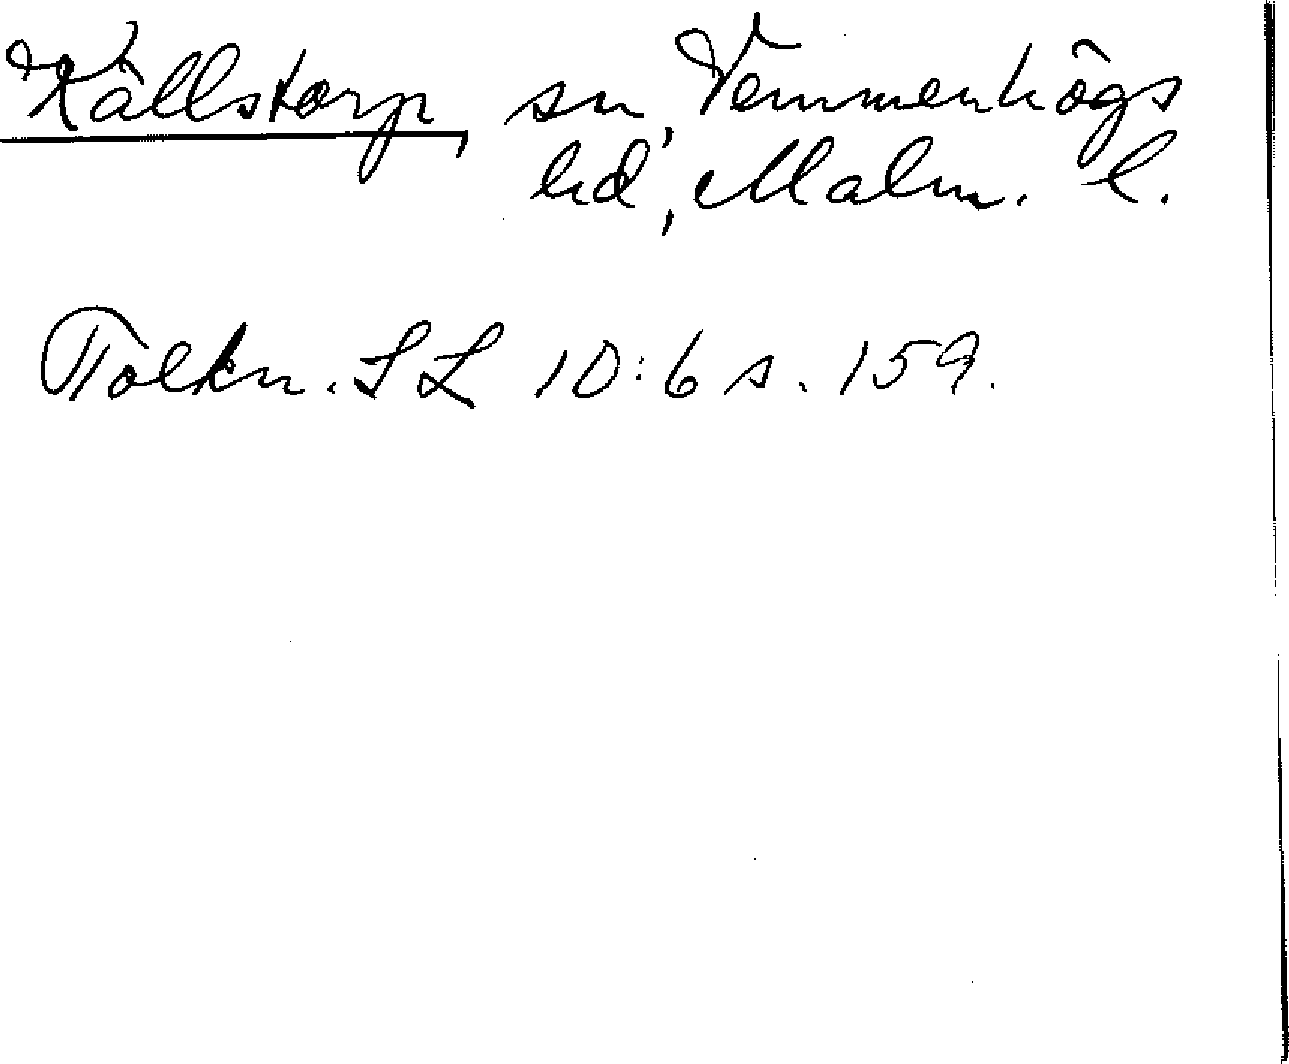 Källstorp, sn, Vemmenhögs
hd, Malm. l.
Tolkn. SL 10:6 s. 159.